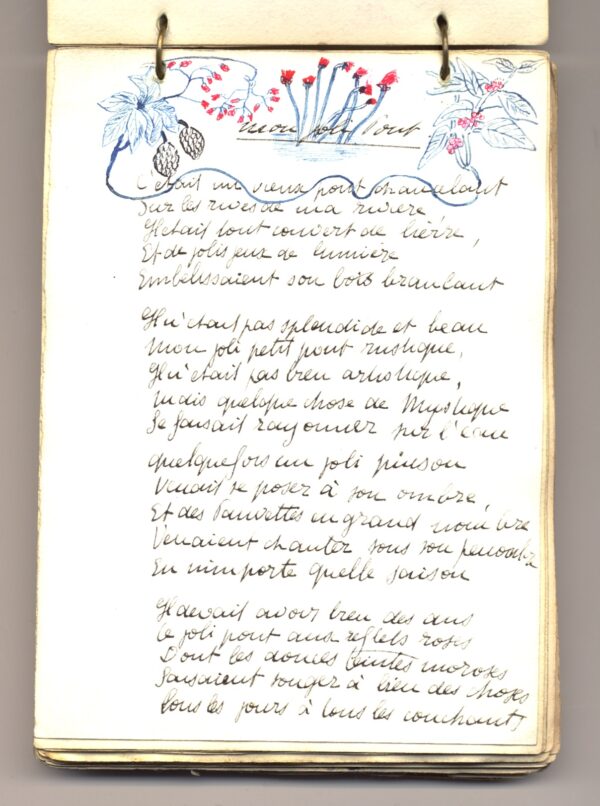 Mon joli Pont
C'était un vieux pont chancelant
Sur les rives de ma rivière
Il était tout couvert de lierre,
Et de jolis jeux de lumière
Embelissaient son bois branlant
Il n'était pas splendide et beau
Mon joli petit pont rustique,
Il n'était pas bien artistique,
Mais quelque chose de Mystique
Le faisait rayonner sur l'eau
quelquefois un joli pinson
Venait se poser à son ombre,
Et des Fauvettes en grand nombre
Venaient chanter sous son penombre
En nimporte quelle saison
Il devait avoir bien des ans
Le joli pont aux reflets roses
Dont les douces teintes moroses
Faisaient songer à bien des choses
Tous les jours à tous les couchants